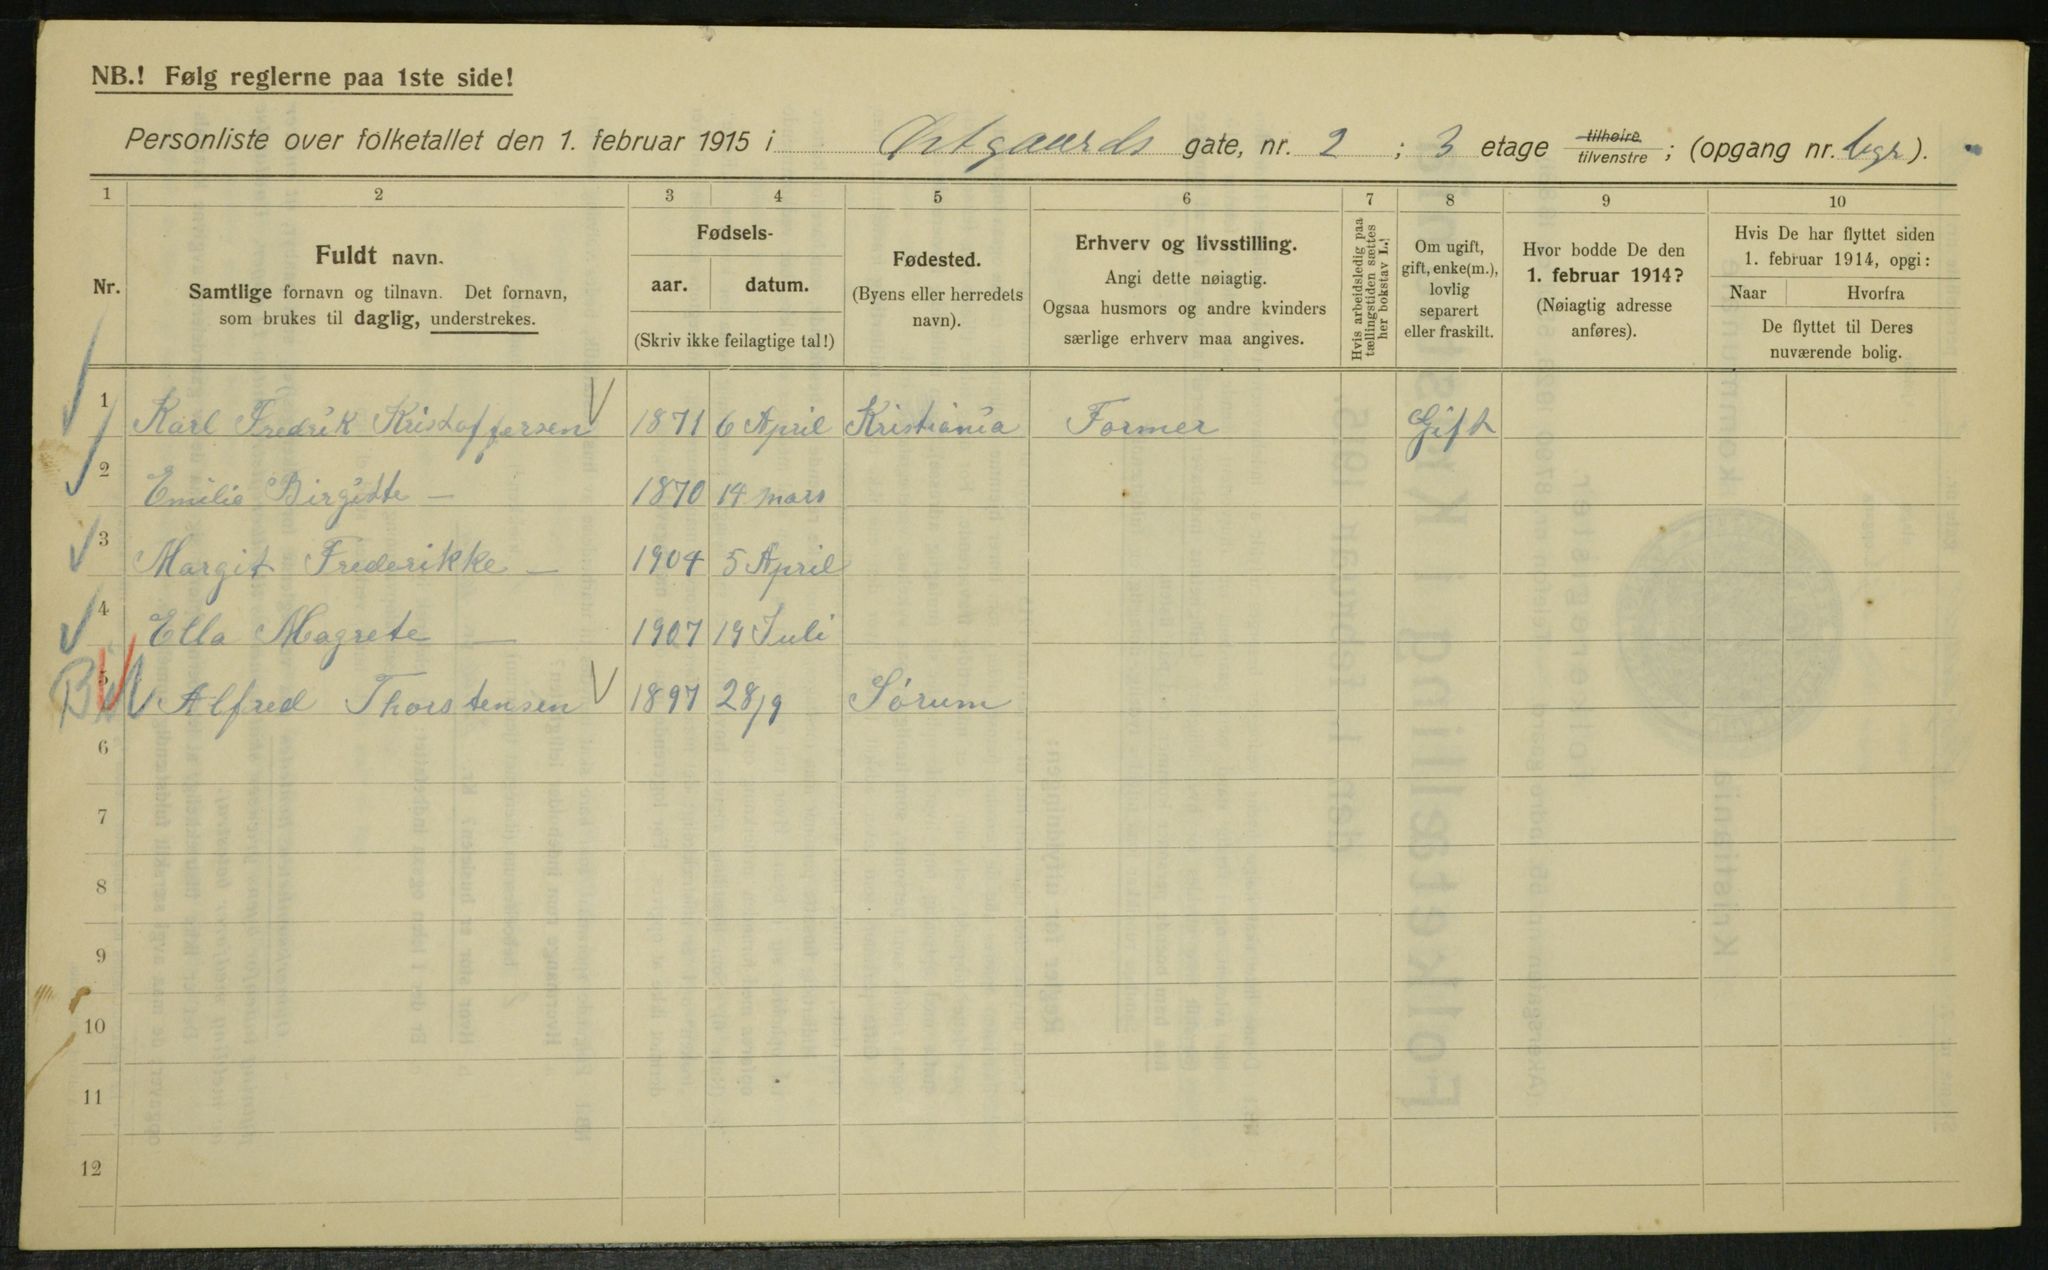 NB.! Følg reglerne paa 1ste side!
Personliste over folketallet den 1. februar 1915 i Østgaards gate, nr. 2 ; 3 etage tilhøire tilvenstre ; (opgang nr. bgr).
1 2 3 4 5 6 7 8 9 10
Nr.
Fuldt navn.
Samtlige fornavn og tilnavn. Det fornavn,
som brukes til daglig, understrekes.
Fødsels-
aar. datum.
(Skriv ikke feilagtige tal!)
Fødested.
(Byens eller herredets
navn).
Erhverv og livsstilling.
Angi dette nøiagtig.
Ogsaa husmors og andre kvinders
særlige erhverv maa angives.
Hvis arbeidsledig paa
tællingstiden sættes
her bokstav L.!
Om ugift,
gift, enke(m.),
lovlig
separert
eller fraskilt.
Hvor bodde De den
1. februar 1914?
(Nøiagtig adresse
anføres).
Hvis De har flyttet siden
1. februar 1914, opgi:
Naar Hvorfra
De flyttet til Deres
nuværende bolig.
1 Karl Fredrik Kristoffersen 1871 6 April Kristiania Former Gift
2 Emilie Birgitte — 1870 14 mars
3 Margit Frederikke — 1904 5 April
4 Ella Magrete — 1907 19 Juli
5 Alfred Thorstensen 1897 28/9 Sörum
6
7
8
9
10
11
12